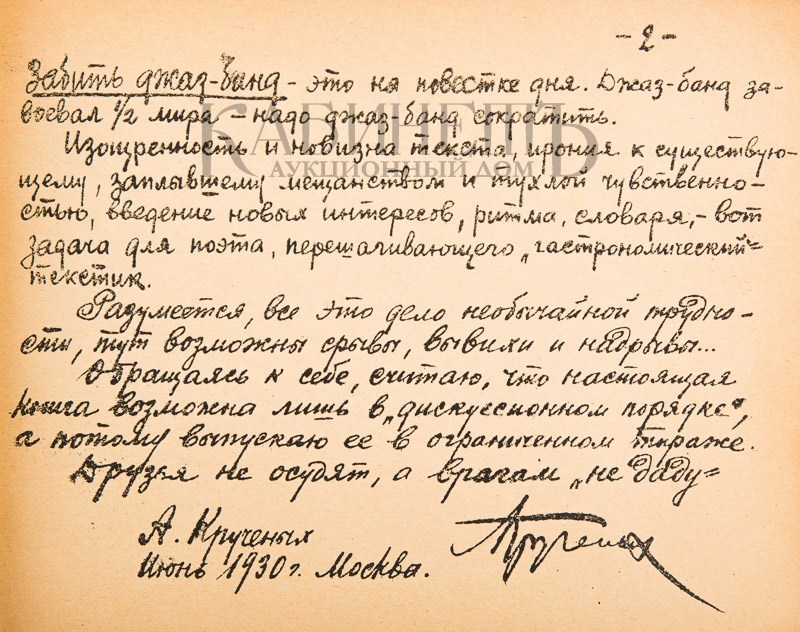 -2-
Забить джаз-банд - это на повестке дня. Джаз-банд за-
воевал 1/2 мира - надо джаз-банд сократить.
КАБИНЕТЪ
АУКЦИОННЫЙ ДОМ
Изощренность и новизна текста, ирония к существую-
щему, заплывшему мещанством и тухлой чувственно-
стью, введение новых интересов, ритма, словаря, - вот
задача для поэта, перешагивающего „гастрономический"
текстик.
Разумеется, все это дело необычайной трудно-
сти, тут возможны срывы, вывихи и надрывы...
Обращаясь к себе, считаю, что настоящая
книга возможна лишь в „дискуссионном порядке",
а потому выпускаю ее в ограниченном тираже.
Друзья не осудят, а врагам „не даду"
А. Крученых
Июнь 1930 г. Москва.
А Крученых